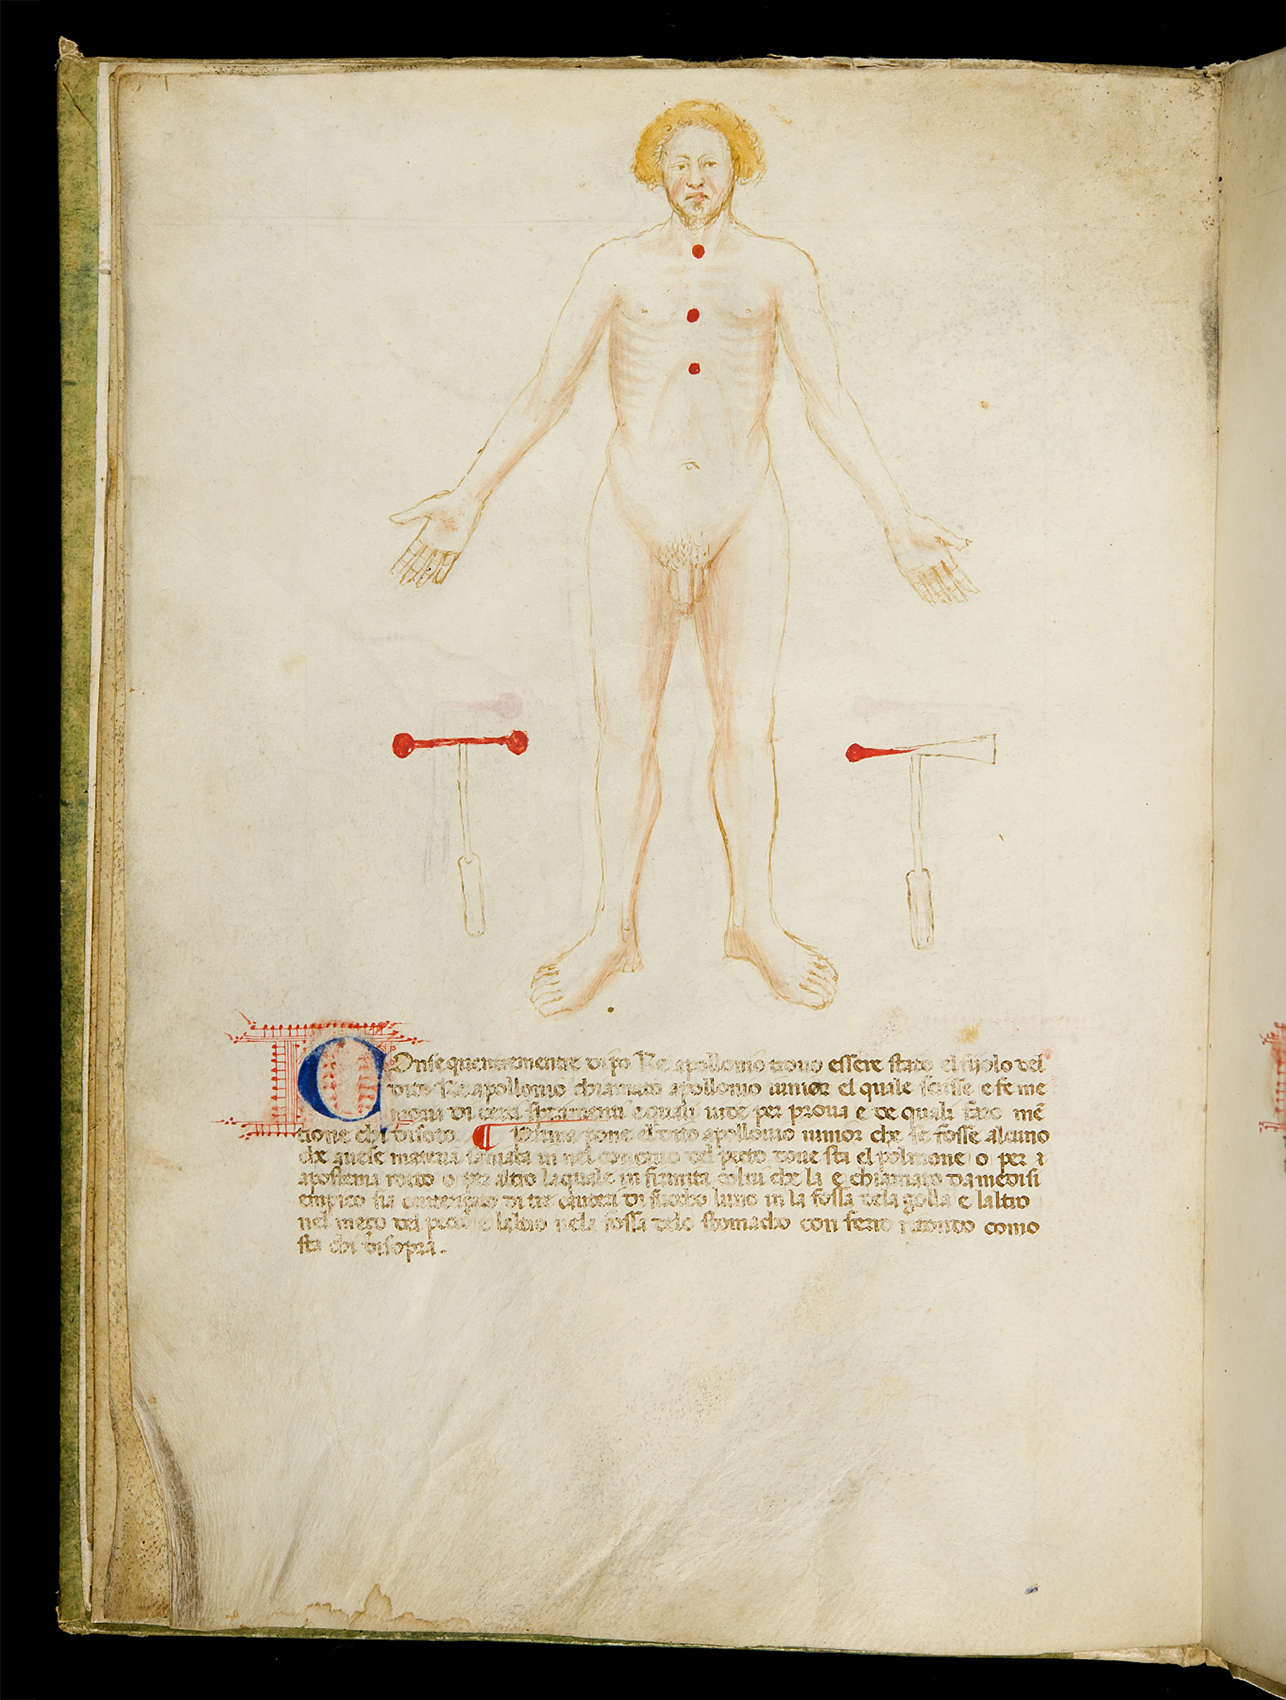 COnsequentemente dipo Re apollonio trouo essere stato el fijolo del
dito Re apollonio chiamato apollonio iunior el quale scrisse e fe me
moria di certi e quali uide per proua e de quali faro mẽ
tione chi disoto. ¶ Prima pone el dito apollonio iunior che se fosse alcuno
che auese materia in nel del peto doue sta el polmone o per
apostema roto o per altro la quale in firmita colui che la e chiamato da medisi
empico sia di tre cauteri di fuocho luno in la fossa dela golla e laltro
nel meço del peto e laltro nela fossa delo stomacho con ferro ritondo como
sta chi disopra.